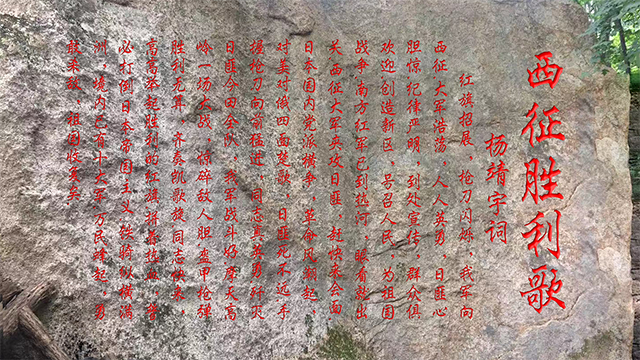 西征胜利歌
杨靖宇词
红旗招展，枪刀闪烁，我军向
西征，大军浩荡，人人英勇，日匪心
胆惊纪律严明，到处宣传，群众俱
欢迎创造新区，号召人民，为祖国
战争南方红军已到热河，眼看就出
长西征大军夹攻日匪，赶快来会面
日本国内党派横争，革命风潮起，
对美对俄四面楚歌，日匪死不远手
握枪刀向前猛进，同志齐英勇歼灭
日匪今田全队，我军战斗好摩天高
岭一场大战，惊碎敌人胆盔甲枪弹
胜利无算，齐奏凯歌旋同志快来，
高高举起胜利的红旗拼着热血，誓
必打倒日本帝国主义铁骑纵横满
洲，境内已有十大军万民蜂起，勇
敢杀敌，祖国收复矣